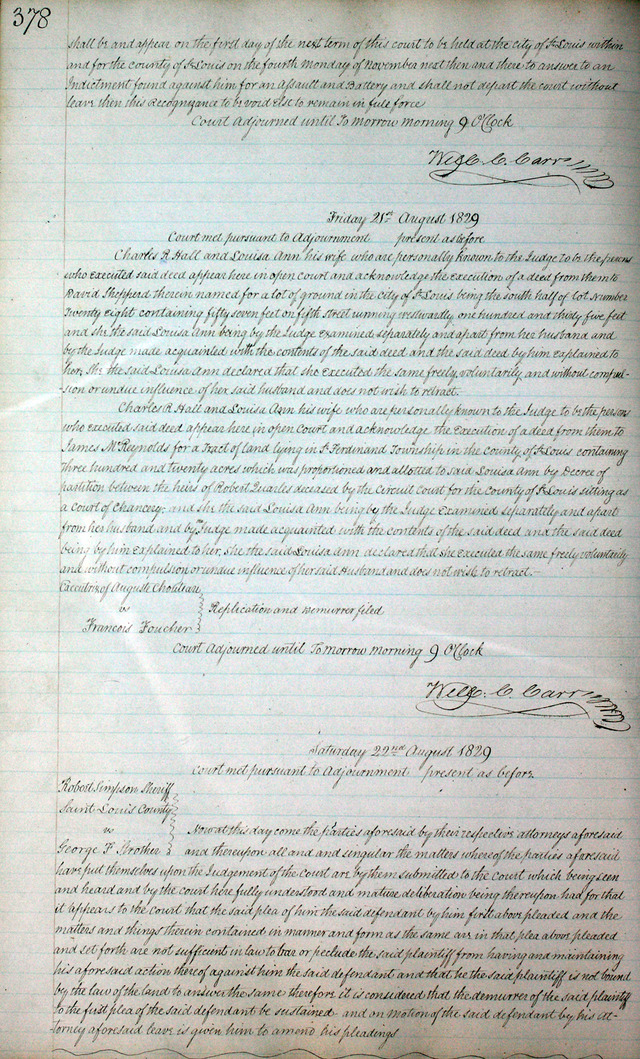 378
shall be and appear on the first day of the next term of this court to be held at the city of St Louis within
and for the county of St Louis on the fourth Monday of November next then and there to answer to an
Indictment found against him for an Assault and Battery and shall not depart the court without
leave then this Recognizance to be void Else to remain in full force
Court Adjourned until To morrow morning 9 O'Clock
Wm. C. Carr
Friday 21st August 1829
Court met pursuant to Adjournment present as before
Charles R. Hall and Louisa Ann his wife who are personally known to the Judge to be the persons
who executed said deed appear here in open court and acknowledge the execution of a deed from them to
David Shepperd therein named for a lot of ground in the city of St Louis being the south half of Lot Number
Twenty Eight containing fifty seven feet on fifth street running westwardly one hundred and thirty five feet
and she the said Louisa Ann being by the Judge Examined separately and apart from her husband and
by the Judge made acquainted with the contents of the said deed and the said deed by him Explained to
her, She the said Louisa Ann declared that she Executed the same freely, voluntarily, and without compul-
sion or undue influence of her said husband and does not wish to retract.
Charles R. Hall and Louisa Ann his wife who are personally known to the Judge to be the person
who executed said deed appear here in open Court and acknowledge the Execution of a deed from them to
James McReynolds for a Tract of land lying in St Ferdinand Township in the county of St Louis containing
three hundred and twenty acres which was proportioned and allotted to said Louisa Ann by Decree of
partition between the heirs of Robert Quarles deceased by the Circuit Court for the County of St Louis sitting as
a Court of Chancery; and she the said Louisa Ann being by the Judge Examined separately and apart
from her husband and by the Judge made acquainted with the contents of the said deed and the said deed
being by him Explained to her, She the said Louisa Ann declared that she Executed the same freely voluntarily
and without compulsion or undue influence of her said Husband and does not wish to retract.—
Executrix of August Chouteau
vs Replication and Demurrer filed
Francois Foucher
Court Adjourned until To morrow morning 9 O'Clock
Wm. C. Carr
Saturday 22nd August 1829
Court met pursuant to Adjournment present as before
Robert Simpson Sheriff
Saint Louis County
vs Now at this day come the parties aforesaid by their respective attorneys aforesaid
George F. Strother and thereupon all and singular the matters whereof the parties aforesaid
have put themselves upon the Judgement of the court are by them submitted to the Court which being seen
and heard and by the court here fully understood and mature deliberation being thereupon had for that
it appears to the court that the said plea of him the said defendant by him first above pleaded and the
matters and things therein contained in manner and form as the same are in that plea above pleaded
and set forth are not sufficient in law to bar or peclude the said plaintiff from having and maintaining
his aforesaid action thereof against him the said defendant and that he the said plaintiff is not bound
by the law of the land to answer the same therefore it is considered that the demurrer of the said plaintiff
to the first plea of the said defendant be sustained and on motion of the said defendant by his At-
torney aforesaid leave is given him to amend his pleadings